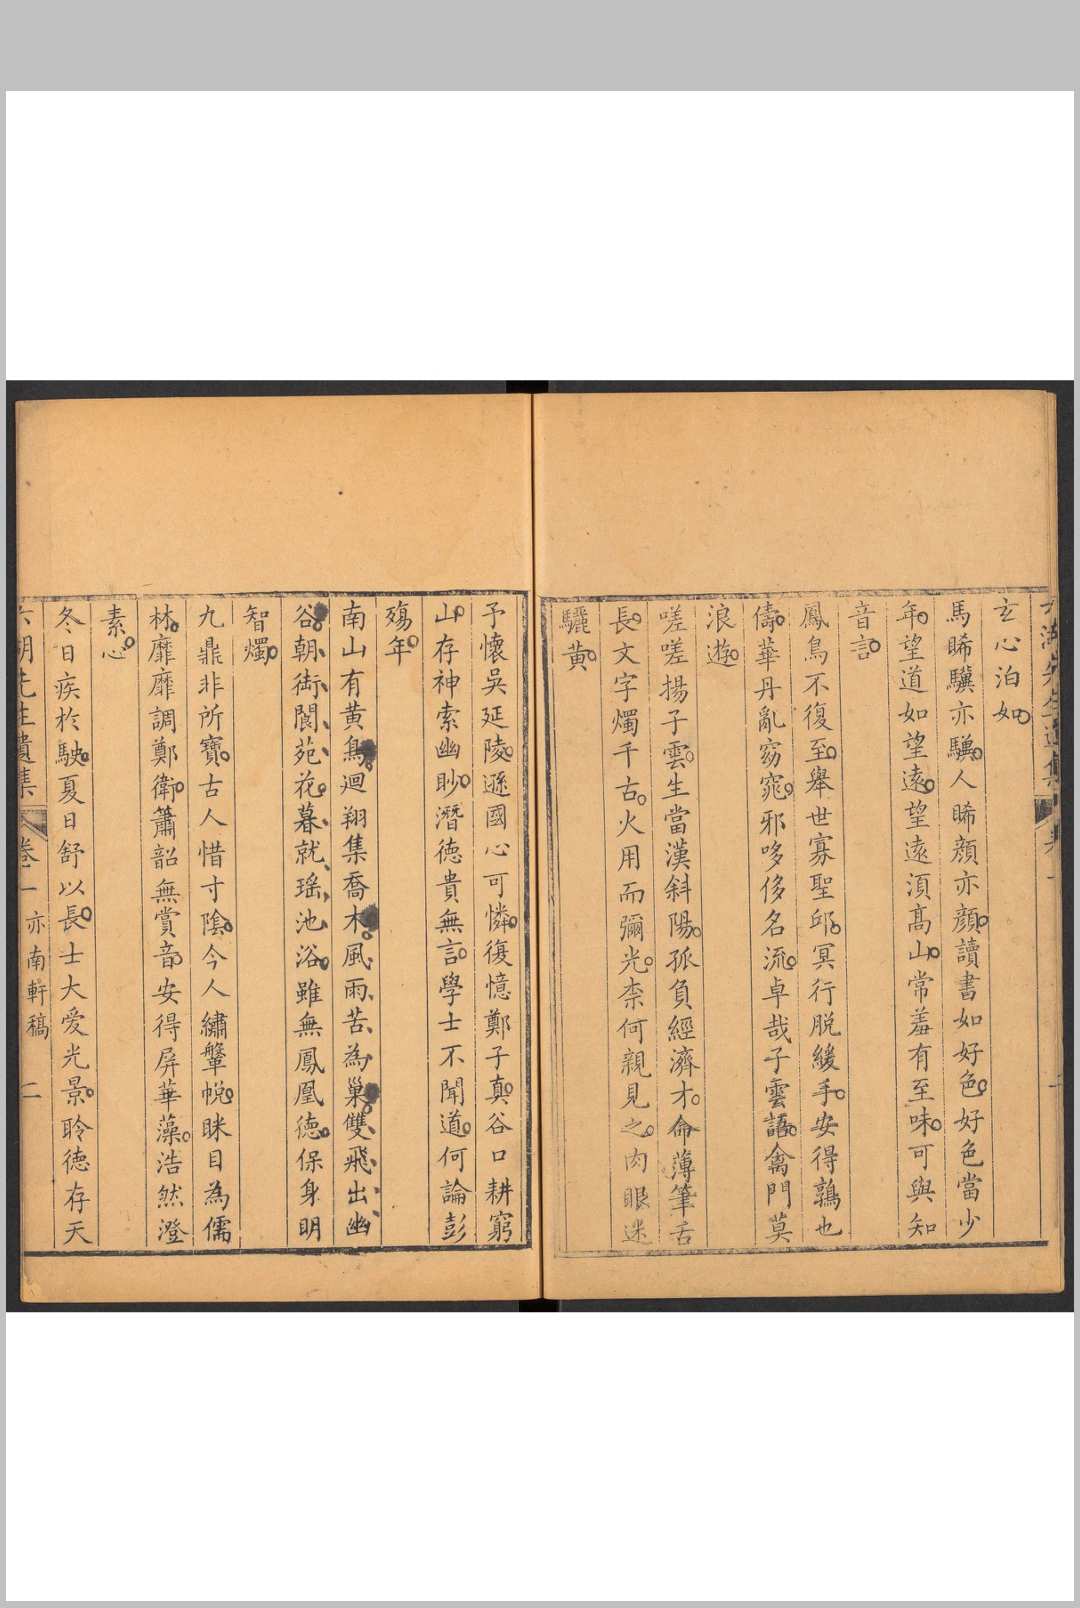 玄心泊如
馬睎驥亦驥人睎顔亦顔讀書如好色好色當少
年望道如望遠望遠須高山常羞有至味可與知
音言
鳳鳥不復至舉世寡聖邱冥行脱緩手安得鶉也
儔華丹亂窈窕邪哆侈名流卓哉子雲語禽門莫
浪遊
嗟嗟揚子雲生當漢斜陽孤負經濟才命薄筆舌
長文字燭千古火用而彌光柰何親見之肉眼迷
驪黄
予懷吳延陵遜國心可憐復憶鄭子真谷口耕窮
山存神索幽眇潛德貴無言學士不聞道何論彭
殤年
南山有黄鳥迴翔集喬木風雨苦為巢雙飛出幽
谷朝銜閬苑花暮就瑶池浴雖無鳳凰德保身明
智燭
九鼎非所寶古人惜寸陰今人繡鞶帨眯目為儒
林靡靡調鄭衛簫韶無賞音安得屏華藻浩然澄
素心
冬日疾於駛夏日舒以長士大爱光景聆德存天
六湖先生遺集 卷二 亦南軒稿 二